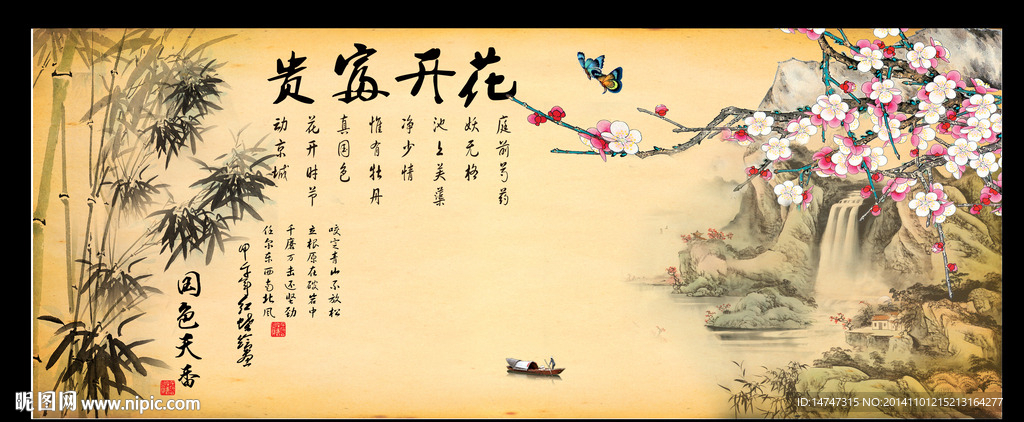 花开富贵
庭前芍药
妖无格
池上芙蕖
净少情
惟有牡丹
真国色
花开时节
动京城
咬定青山不放松
立根原在破岩中
千磨万击还坚劲
任尔东西南北风
甲午年
国色天香
昵图网 www.nipic.com
ID:14747315 NO:20141101215213164277